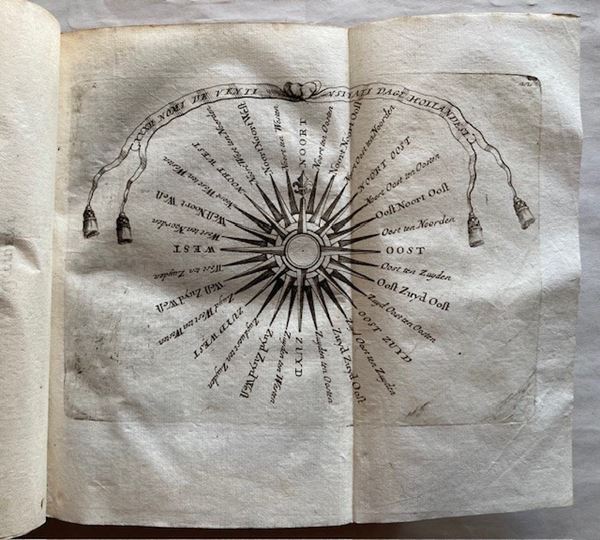 XXXII NOMI DE VENTI
USITATI DAGL'HOLLANDESI
NOORT
Noort ten Oosten
Noort Noort Oost
Noort Oost ten Noorden
NOORT OOST
Noort Oost ten Oosten
Oost Noort Oost
Oost ten Noorden
OOST
Oost ten Zuyden
Oost Zuyd Oost
Zuyd Oost ten Oosten
OOST ZUYD
Zuyd Oost ten Zuyden
Zuyd Zuyd Oost
Zuyden ten Oosten
ZUYD
Zuyden ten Westen
Zuyd Zuyd West
Zuydwest ten Zuyden
ZUYDWEST
Zuyd West ten Westen
West Zuyd West
West ten Zuyden
WEST
West ten Noorden
West Noort West
Noort West ten Westen
NOORT WEST
Noort West ten Noorden
Noort Noort West
Noort ten Westen